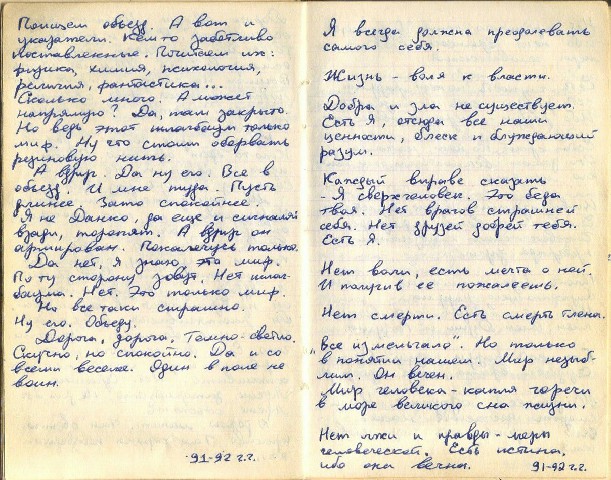 Поищем объезд. А вот и
указатели. Кем-то заботливо
поставленные. Почитаем их:
физика, химия, психология,
религия, фантастика...
Сколько много. А может
напрямую? Да, там закрыто.
Но ведь этот шлагбаум только
миф. Ну что стоит оборвать
резиновую нить.
А вдруг. Да ну его. Все в
объезд. И мне туда. Пусть
длинее. Зато спокойнее.
Я не Данко, да еще и сигналят
взади, торопят. А вдруг он
армирован. Покалечусь только.
Да нет, я знаю, это миф.
По ту сторону зовут. Нет шлаг-
баума. Нет. Это только миф.
Но все таки страшно.
Ну его. Объеду.
Дорога, дорога, темно-светло.
Скучно, но спокойно. Да и со
всеми веселее. Один в поле не
воин.
91-92 г.г.
Я всегда должна преодолевать
самого себя.
Жизнь - воля к власти.
Добра и зла не существует.
Есть Я, отсюда все наши
ценности, блеск и блуждающий
разум.
Каждый вправе сказать
- Я сверхчеловек. Это беда
твоя. Нет врагов страшней
себя. Нет друзей добрей тебя.
Есть Я.
Нет воли, есть мечта о ней.
И получив ее пожалеешь.
Нет смерти. Есть смерть тлена.
"Все измельчало". Но только
в понятии нашем. Мир незыб-
лим. Он вечен.
Мир человека - капля горечи
в море великого сна жизни.
Нет лжи и правды - меры
человеческой. Есть истина,
ибо она вечна.
91-92 г.г.